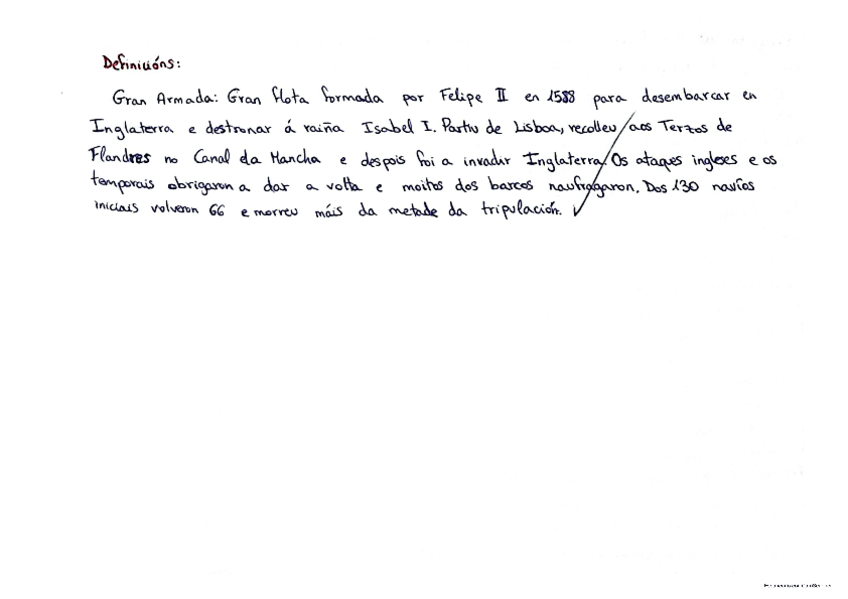 Definicións:
Gran Armada: Gran flota formada por Felipe II en 1588 para desembarcar en
Inglaterra e destronar á raíña Isabel I. Partiu de Lisboa, recolleu aos Terzos de
Flandres no Canal da Mancha e despois foi a invadir Inglaterra. Os ataques ingleses e os
temporais obrigaron a dar a volta e moitos dos barcos naufragaron. Dos 130 navíos
iniciais volveron 66 e morreu máis da metade da tripulación.